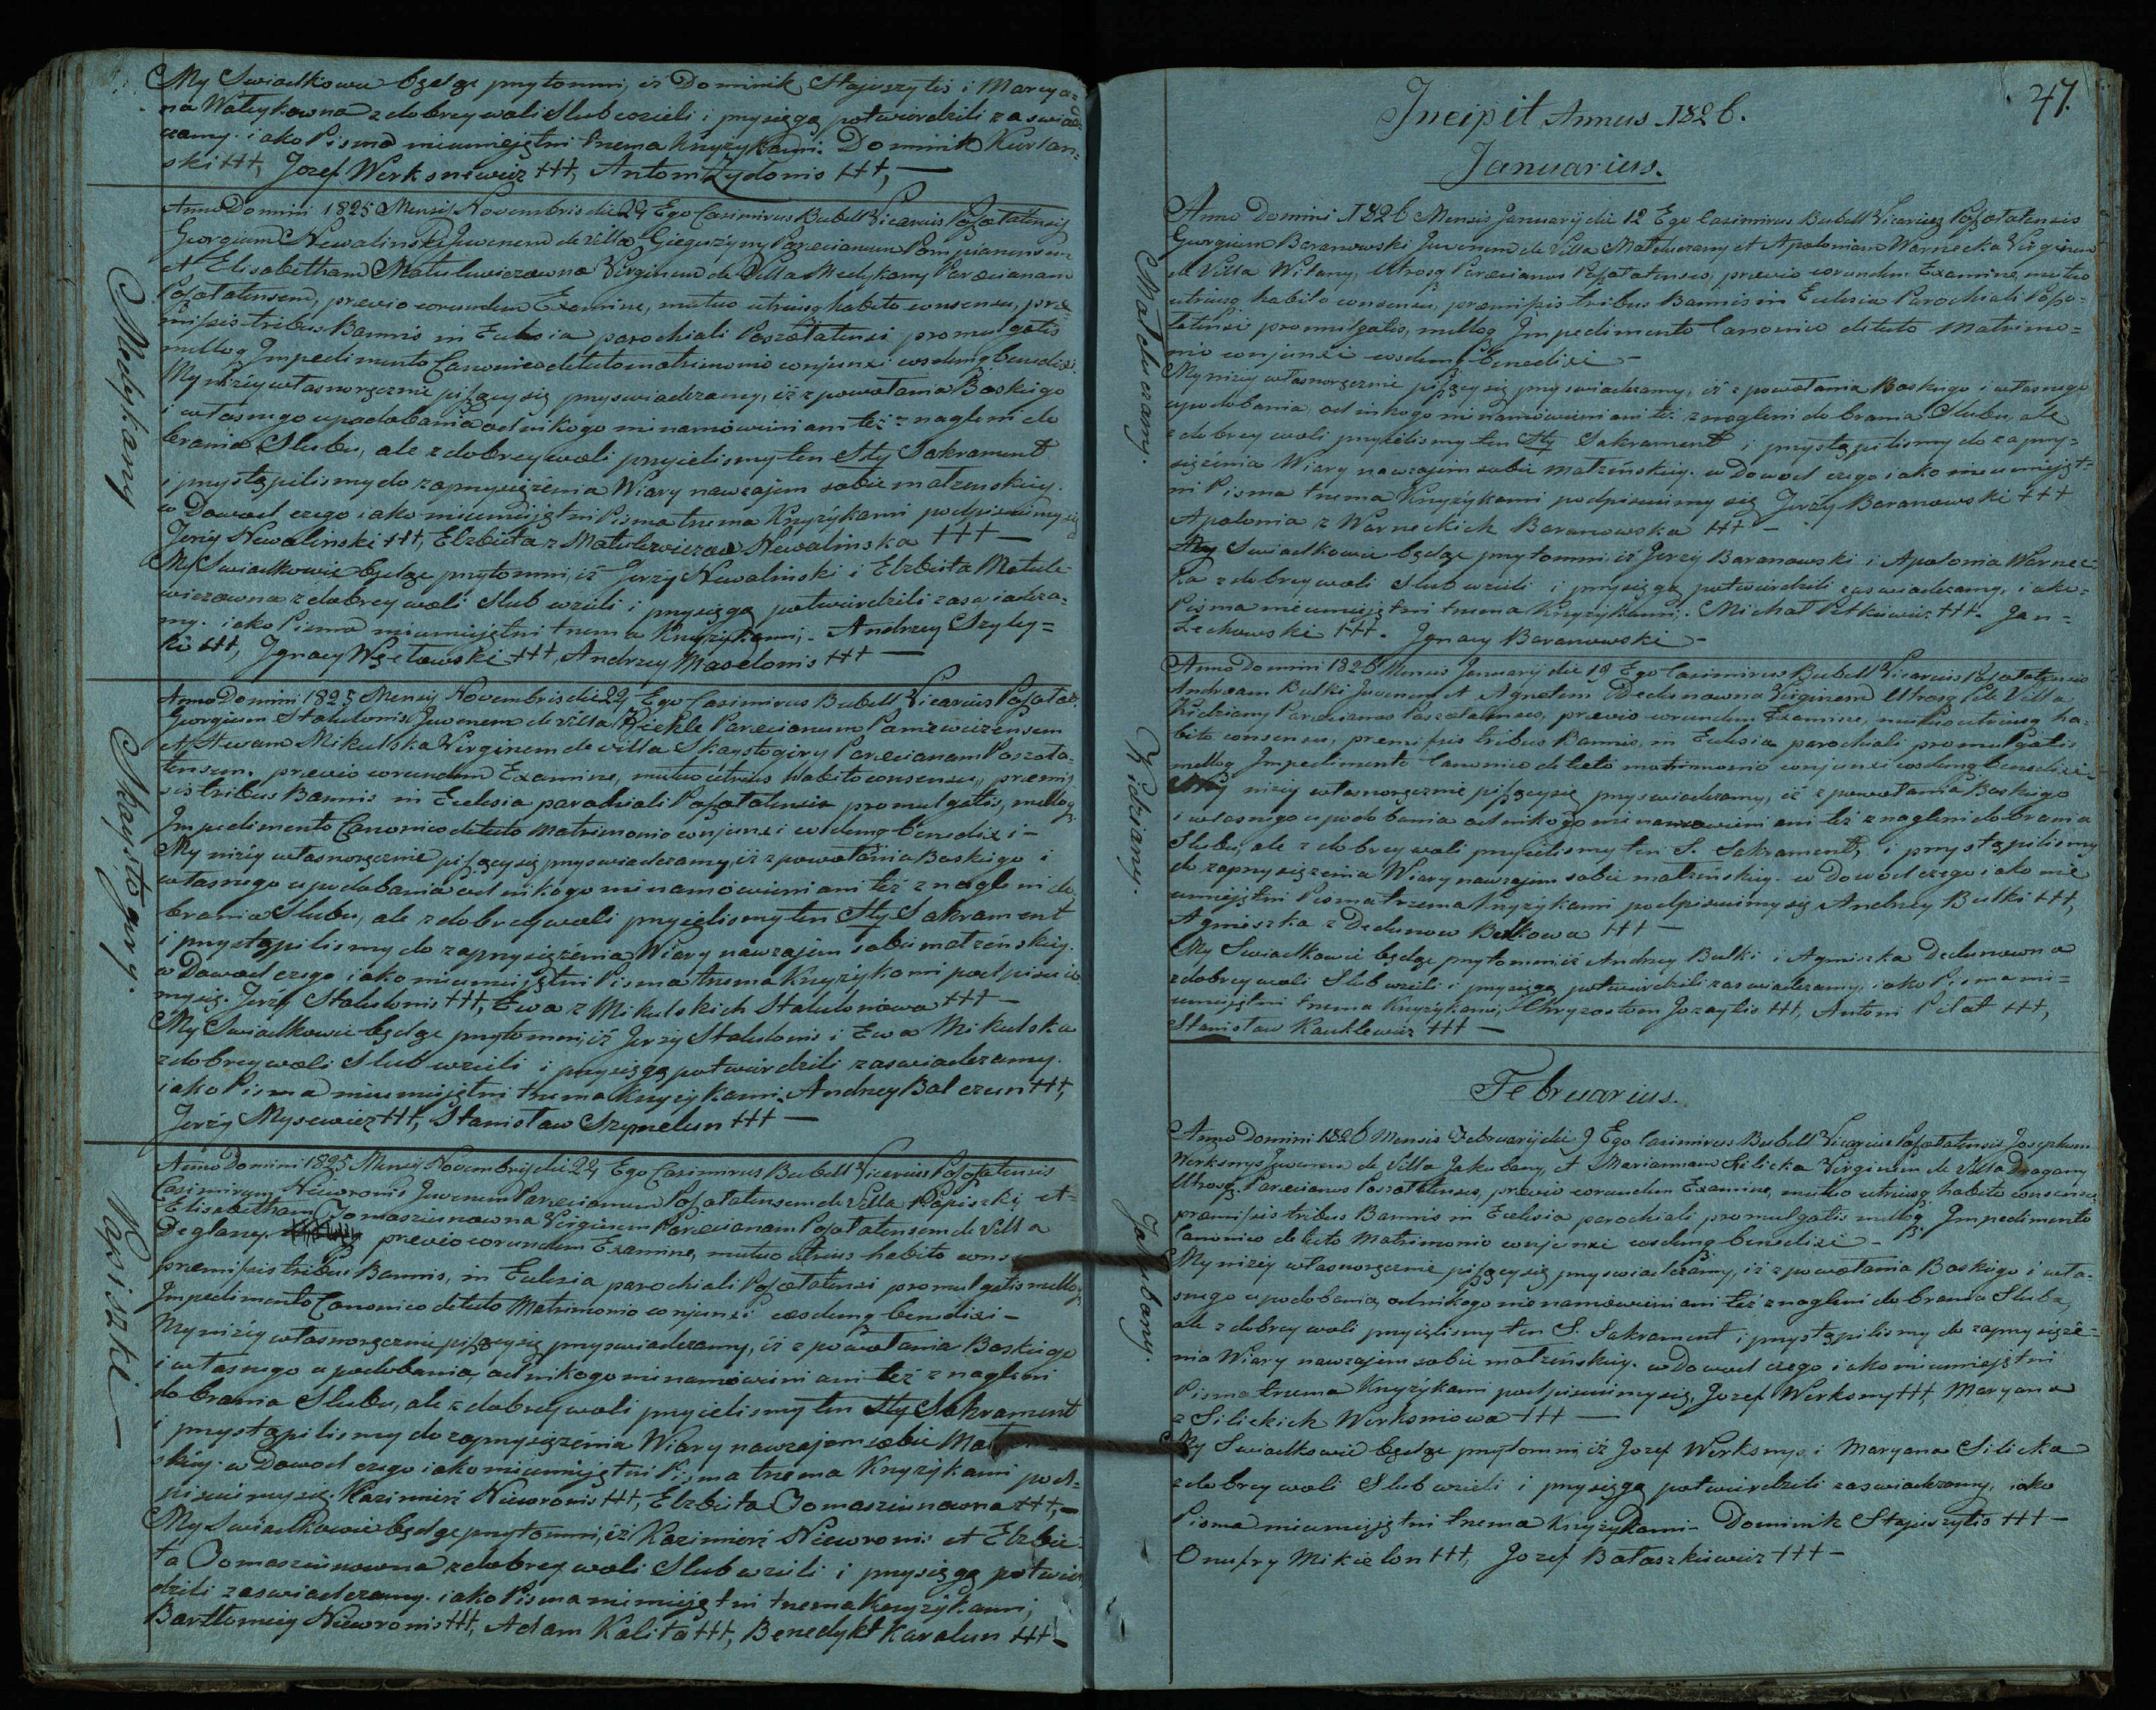 My Swiadkowie będąc przytomni, iż Dominik Stajuszytis i Marya=
na Wałeykowna z dobrey woli Slub wzieli i przysięgą potwierdzili zaswiad=
czamy. iako Pisma nieumiejętni trzema krzyżykami. Dominik Kurlan=
ski +++, Jozef Werksniewicz +++, Antoni Zydonis +++, —
Medykany
Anno Domini 1825 Mensis Novembris die 22 Ego Casimirus Bubell Vicarius Poszołatensis
Georgium Newalinski Juvenem de villa Gieguzyny Parecianum Pompianensem
et Elisabetham Matulewiczowna Virginem de Villa Medykany Parecianam
Poszołatensem, prævio eorundem Examine, mutuo utriusq habito consensu, præ=
missis tribus Bannis in Eclesia parochiali Poszołatensi promulgatis
nulloq Impedimento Canonico detecto matrimonio conjunxi eosdemq benedixi.
My niżey własnoręcznie piszący się przyswiadczamy, iż z powołania Boskiego
i własnego upodobania od nikogo nienamówieni ani też znagleni do
brania Slubu, ale z dobrey woli przyielismy ten Sty Sakrament
i przystąpilismy do zaprzysiężenia Wiary nawzajem sobie małzenskiey.
w Dowod czego iako nieumiejętni Pisma trzema Krzyżykami podpisuiemy się
Jerzy Newalinski +++, Elzbieta z Matulewiczow Newalinska +++ —
My Swiadkowie będąc przytomni, iż Jerzy Newalinski i Elzbieta Matule=
wiczowna z dobrey woli Slub wzieli i przysięgą potwierdzili zaswiadcza=
my. iako Pisma nieumiejętni trzema Krzyżykami. Andrzey Szyley=
ki +++, Ignacy Węcławski +++, Andrzey Masedonis +++ —
Skaystogiry.
Anno Domini 1825 Mensis Novembris die 22 Ego Casimirus Bubell Vicarius Poszołat:
Georgium Staludonis Juvenem de villa Kiekle Parecianum Paniewiezensem
et Ewam Mikulska Virginem de villa Skaystogiry Parecianam Poszoła=
tensem. prævio eorundem Examine, mutuo utrius habito consensu, præmis
sis tribus Bannis in Eclesia parochiali Poszołatensi promulgatis, nulloq
Impedimento Canonico detecto Matrimonio conjunxi eosdemq benedixi —
My niżey własnoręcznie piszący się przyswiadczamy, iż z powołania Boskiego i
własnego upodobania od nikogo nienamówieni ani też znagleni do
brania Slubu, ale z dobrey woli przyielismy ten Sty Sakrament
i przystąpilismy do zaprzysiężenia Wiary nawzajem sobie małzeńskiey.
w Dowod czego iako nieumiejętni Pisma trzema Krzyżykami podpisuie
my się. Jerzy Staludonis +++, Ewa z Mikulskich Staludonowa +++ —
My Swiadkowie będąc przytomni, iż Jerzy Staludonis i Ewa Mikulska
z dobrey woli Slub wzieli i przysięgą potwierdzili zaswiadczamy.
iako Pisma nieumiejętni trzema krzyżykami. Andrzey Balczun +++,
Jerzy Mysewicz +++, Stanisław Szymelun +++ —
Papiszki —
Anno Domini 1825 Mensis Novembris die 22 Ego Casimirus Bubell Vicarius Poszołatensis
Casimirum Nieworonis Juvenem Parecianum Poszołatensem de Villa Papiszki et=
Elisabetham Tomasziunowna Virginem Parecianam Poszołatensem de Villa
Deglany prævio eorundem Examine, mutuo utrius habito conse
præmissis tribus Bannis, in Eclesia parochiali Poszołatensi promulgatis nulloq
Impedimento Canonico detecto Matrimonio conjunxi eosdemq benedixi —
My niżey własnoręcznie piszący się przyswiadczamy, iż z powołania Boskiego
i własnego upodobania, od nikogo nienamówieni ani też znagleni
do brania Slubu, ale z dobrey woli przyielismy ten Sty Sakrament
i przystąpilismy do zaprzysiężenia Wiary nawzajem sobie Małżeń
skiey. w Dowod czego iako nieumiejętni Pisma trzema Krzyżykami pod=
pisuiemy się. Kazimierz Nieworonis +++, Elzbieta Tomasziunowna +++, —
My Swiadkowie będąc przytomni, iż Kazimierz Nieworonis et Elzbie=
ta Tomasziunowna z dobrey woli Slub wzieli i przysięgą potwier
dzili zaswiadczamy. iako Pisma nieumiejętni trzema krzyżykami,
Bartłomiey Nieworonis +++, Adam Kalita +++, Benedykt Karalun +++ —
47.
Incipit Annus 1826.
Januarius.
Matduczany.
Anno Domini 1826 Mensis Januarij die 12 Ego Casimirus Bubell Vicarius Poszołatensis
Georgium Baranowski Juvenem de Villa Matduczany et Apoloniam Warnecka Virginem
de Villa Witany, Utrosq Parecianos Poszołatenses, prævio eorundem Examine, mutuo
utriusq habito consensu, præmissis tribus Bannis in Eclesia Parochiali Poszo=
łatensi promulgatis, nulloq Impedimento Canonico detecto Matrimo=
nio conjunxi eosdemq Benedixi —
My niżey własnoręcznie piszący się przyswiadczamy, iż z powołania Boskiego i własnego
upodobania, od nikogo nienamówieni ani też znagleni do brania Slubu, ale
z dobrey woli przyielismy ten Sty Sakrament i przystąpilismy do zaprzy=
siężenia Wiary nawzajem sobie Małzeńskiey. w Dowod czego iako nieumiejęt=
ni Pisma trzema Krzyżykami podpisuiemy się Jerzy Baranowski +++
Apolonia z Warneckich Baranowska +++ —
My Swiadkowie będąc przytomni iż Jerzy Baranowski i Apolonia Warnec=
ka z dobrey woli Slub wzieli i przysięgą potwierdzili zaswiadczamy, iako=
Pisma nieumiejętni trzema Krzyżykami. Michał Petkiewicz +++. Jan=
Lechowski +++. Ignacy Baranowski —
Kidziany.
Anno Domini 1826 Mensis Januarij die 19 Ego Casimirus Bubell Vicarius Poszołatensis
Andream Bulki Juvenem et Agnetem Dedunowna Virginem Utrosq de Villa
Kidziany Parecianos Poszołatenses, prævio eorundem Examine, mutuo utriusq ha=
bito consensu, premissis tribus Bannis, in Eclesia parochiali promulgatis
nulloq Impedimento Canonico detecto matrimonio conjunxi eosdemq benedixi —
My niżey własnoręcznie piszący się przyswiadczamy, iż z powołania Boskiego
i własnego upodobania od nikogo nienamowieni ani też znagleni do brania
Slubu, ale z dobrey woli przyielismy ten S. Sakrament, i przystąpilismy
do zaprzysiężenia Wiary nawzajem sobie małzeńskiey. w Dowod czego iako nie
umiejętni Pisma trzema Krzyżykami podpisuiemy się Andrzey Bulki +++,
Agnieszka z Dedunow Bulkowa +++ —
My Swiadkowie będąc przytomni iż Andrzey Bulki i Agnieszka Dedunowna
z dobrey woli Slub wzieli i przysięgą potwierdzili zaswiadczamy, iako Pisma nie=
umiejętni trzema Krzyżykami, Chryzostom Jozaytis +++, Antoni Piłat +++,
Stanisław Kauklewicz +++ —
Februarius.
Jakubany.
Anno Domini 1826 Mensis Februarij die 9 Ego Casimirus Bubell Vicarius Poszołatensis Josephum
Werksnys Juvenem de Villa Jakubany, et Mariannam Silicka Virginem de Villa Dragany
Utrosq. Parecianos Poszołatenses, prævio eorundem Examine, mutuo utriusq habito consensu
præmissis tribus Bannis in Eclesia parochiali promulgatis nulloq Impedimento
Canonico detecto Matrimonio conjunxi eosdemq benedixi —
My niżey własnoręcznie piszący się przyswiadczamy, iż z powołania Boskiego i wła=
snego upodobania, od nikogo nienamówieni ani też znagleni do brania Slubu,
ale z dobrey woli przyięlismy ten S. Sakrament i przystąpilismy do zaprzysięże=
nia Wiary nawzajem sobie małzeńskiey. w Dowod czego iako nieumiejętni
Pisma trzema Krzyżykami podpisuiemy się, Jozef Werksnys +++, Maryana
z Silickich Werksniowa +++ —
My Swiadkowie będąc przytomni, iż Jozef Werksnys i Maryana Silicka
z dobrey woli Slub wzieli i przysięgą potwierdzili zaswiadczamy, iako
Pisma nieumiejętni trzema Krzyżykami — Dominik Stajuszytis +++ —
Onufry Mikielon +++, Jozef Bałaszkiewicz +++ —